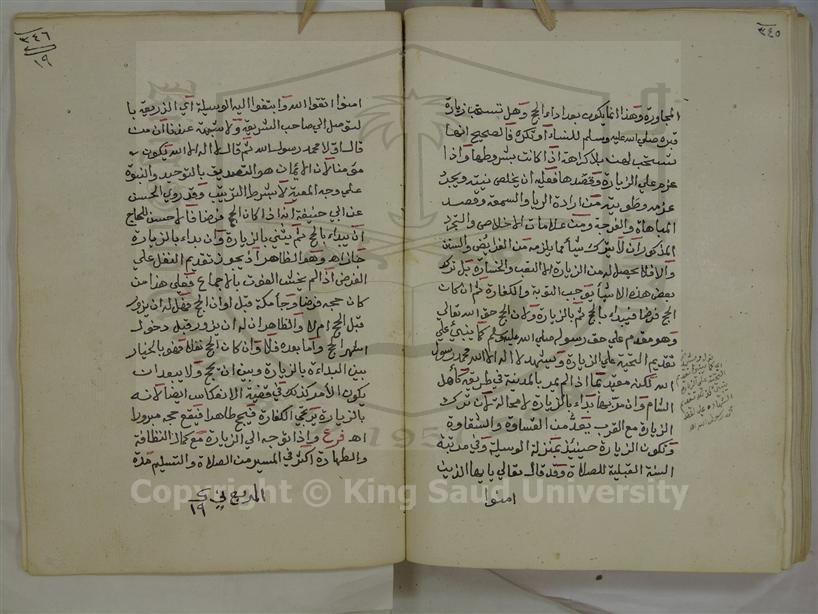 ٣٤٥
المجاورة وهذا انما يكون بعد اداء الحج وهل تستحب زيارة
قبره صلى الله عليه وسلم للنساء او تكره فالصحيح انها
تستحب لهن بلا كراهة اذا كانت بشروطها واذا
عزم على الزيارة وقصدها فعليه ان يخلص نيته ويجرد
عزمه وطويته من ارادة الريا والسمعة وقصد
المباهاة والفرجة ومن علامات الاخلاص والتجرد
المذكور ان لا يترك شيأ مما يلزمه من الفرايض والسنن
والا فلا يحصل له من الزيارة الا التعب والخسارة بل ترك
بعض هذه الاشيا يوجب التوبة والكفارة ثم ان كان
الحج فرضا فيبداء بالحج ثم بالزيارة ولان الحج حق الله تعالى
وهو مقدم على حق رسوله صلى الله عليه وسلم كما ينبئ على
تقديم التحية على الزيارة ويشهد لا اله الا الله محمد رسول
الله لكنه مقيد بما اذا لم يمر بالمدينة في طريقه كأهل
الشام وان مر بها بداء بالزيارة لا محالة لان ترك
الزيارة مع القرب يعد من القساوة والشقاوة
وتكون الزيارة حينئذ بمنزلة الوسيلة وفي مرتبة
السنة القبلية للصلاة وقد قال تعالى يا يها الذين
امنوا
٣٤٦
١٩
امنوا اتقوا الله وابتغوا اليه الوسيلة اي الذريعة با
لتوصل الى صاحب الشريعة ولا شبهة عندنا ان من
قال اولا محمد رسول الله ثم قال لا اله الا الله يكون
مؤمنا لان الايمان هو التصديق بالتوحيد والنبوة
على وجه المعية لا بشرط الترتيب وقد روى الحسن
عن ابي حنيفة انه اذا كان الحج فرضا فالاحسن للحاج
ان يبداء بالحج ثم يثني بالزيارة وان بداء بالزيارة
جاز اه وهو الظاهر اذ يجوز تقديم النفل على
الفرض اذا لم يخش الفوت بالاجماع فعلى هذا من
كان حجه فرضا وجا مكة قبل اوان الحج فهل له ان يزور
قبل الحج ام لا والظاهر ان له ان يزور قبل دخول
اشهر الحج واما بعده فلا وان كان الحج نفلا فهو بالخيار
بين البداءة بالزيارة وبين ان يحج ولا يبعد ان
يكون الأمر كذلك في قضية الانعكاس ايضا لانه
بالزيارة يرتجي الكفارة فيحج طاهرا فيقع حجه مبرورا
اه فرع واذا توجه الى الزيارة مع كمال النظافة
والطهارة اكثر في المسير من الصلاة والتسليم مدة
١٩
Copyright © King Saud University
195